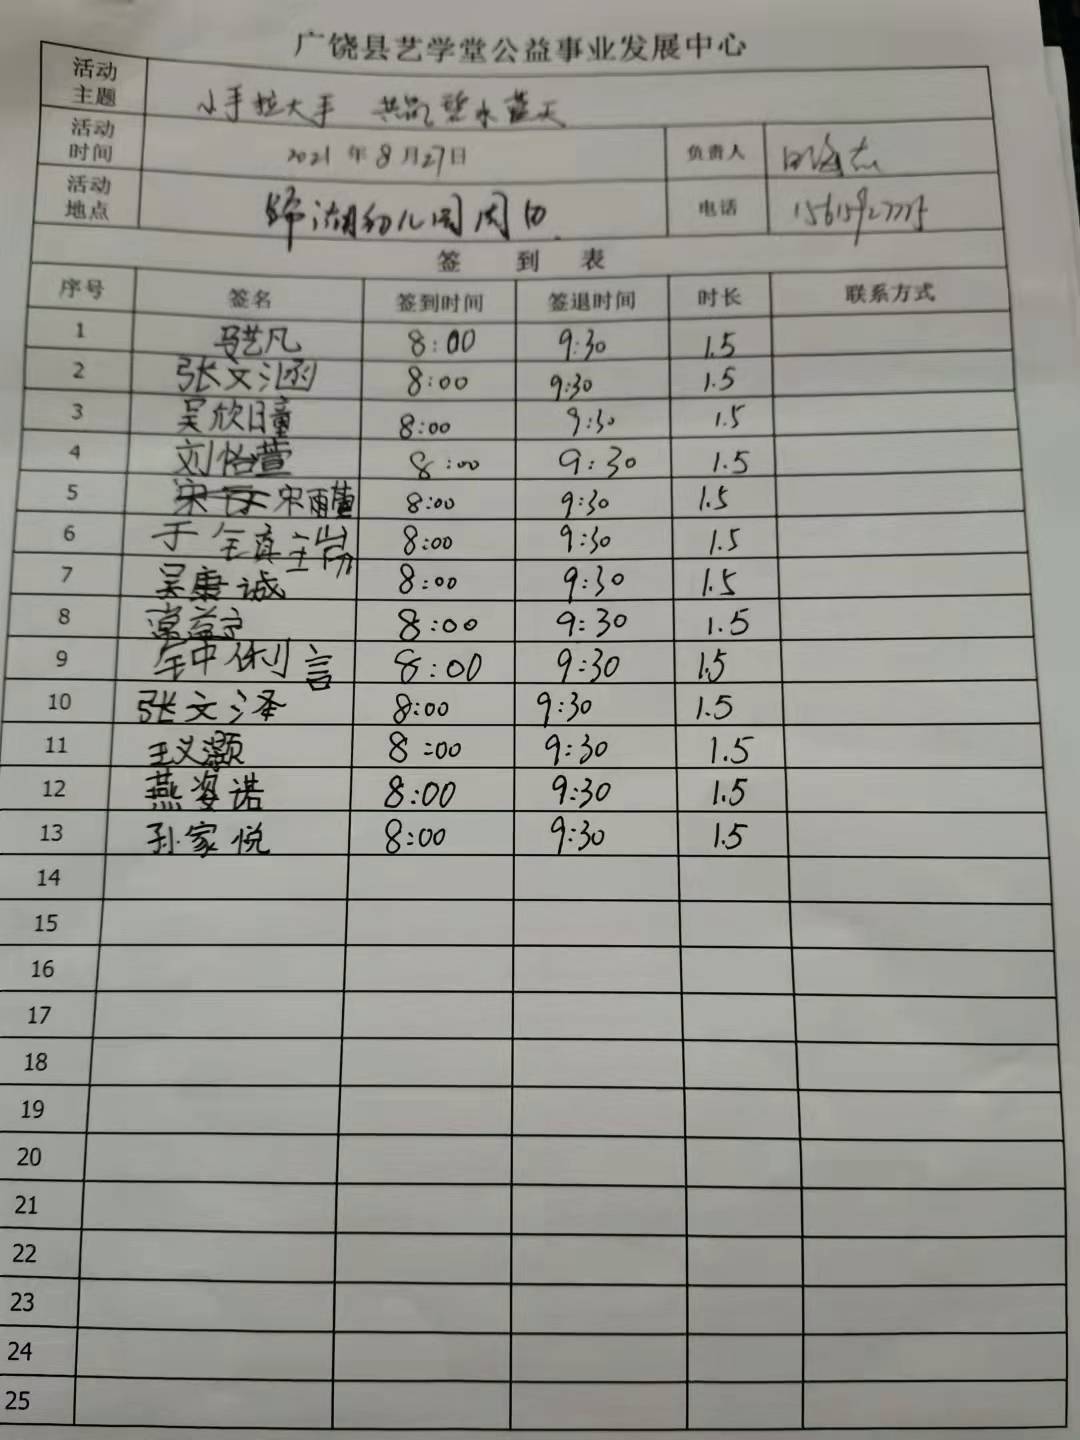 广饶县艺学堂公益事业发展中心
活动主题 小手拉大手 共筑碧水蓝天
活动时间 2021年8月27日 负责人
活动地点 湖幼儿园周 电话
签 到 表
序号 签名 签到时间 签退时间 时长 联系方式
1 马艺凡 8:00 9:30 1.5
2 张文涵 8:00 9:30 1.5
3 吴欣曈 8:00 9:30 1.5
4 刘怡萱 8:00 9:30 1.5
5 宋雨萱 8:00 9:30 1.5
6 于 8:00 9:30 1.5
7 吴康诚 8:00 9:30 1.5
8 常益宁 8:00 9:30 1.5
9 8:00 9:30 1.5
10 张文泽 8:00 9:30 1.5
11 王义灏 8:00 9:30 1.5
12 燕姿诺 8:00 9:30 1.5
13 孙家悦 8:00 9:30 1.5
14
15
16
17
18
19
20
21
22
23
24
25